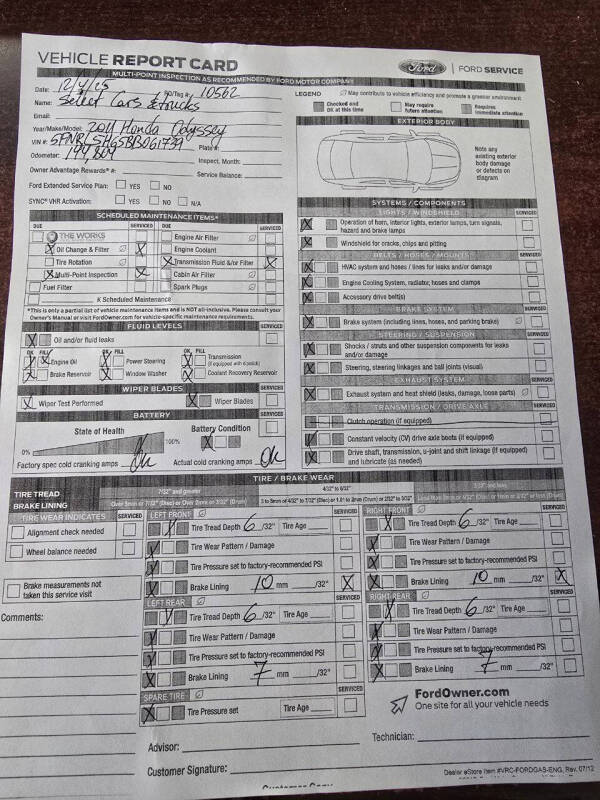 VEHICLE REPORT CARD
Ford | FORD SERVICE
MULTI-POINT INSPECTION AS RECOMMENDED BY FORD MOTOR COMPANY
Date: 12/4/25 RO/Tag #: 10562
Name: Select Cars & trucks
Email:
Year/Make/Model: 2011 Honda Odyssey
VIN #: Plate #:
Odometer: Inspect. Month:
Owner Advantage Rewards®#: Service Balance:
Ford Extended Service Plan: YES NO
SYNC® VHR Activation: YES NO N/A
LEGEND May contribute to vehicle efficiency and promote a greener environment
Checked and OK at this time
May require future attention
Requires immediate attention
EXTERIOR BODY
Note any
existing exterior
body damage
or defects on
diagram
SCHEDULED MAINTENANCE ITEMS*
DUE SERVICED DUE SERVICED
THE WORKS Engine Air Filter
X Oil Change & Filter X Engine Coolant
Tire Rotation X Transmission Fluid &/or Filter X
X Multi-Point Inspection X Cabin Air Filter
Fuel Filter Spark Plugs
K Scheduled Maintenance
*This is only a partial list of vehicle maintenance items and is NOT all-inclusive. Please consult your
Owner's Manual or visit FordOwner.com for vehicle-specific maintenance requirements.
FLUID LEVELS SERVICED
X Oil and/or fluid leaks
OK FILL OK FILL OK FILL
Engine Oil Power Steering Transmission
(if equipped with dipstick)
Brake Reservoir Window Washer Coolant Recovery Reservoir
WIPER BLADES SERVICED
Wiper Test Performed X Wiper Blades
BATTERY SERVICED
State of Health Battery Condition
0% 100%
Factory spec cold cranking amps OK Actual cold cranking amps OK
SYSTEMS / COMPONENTS
LIGHTS / WINDSHIELD SERVICED
X Operation of horn, interior lights, exterior lamps, turn signals,
hazard and brake lamps
X Windshield for cracks, chips and pitting
BELTS / HOSES / MOUNTS SERVICED
X HVAC system and hoses / lines for leaks and/or damage
X Engine Cooling System, radiator, hoses and clamps
X Accessory drive belt(s)
BRAKE SYSTEM SERVICED
X Brake system (including lines, hoses, and parking brake)
STEERING / SUSPENSION SERVICED
X Shocks / struts and other suspension components for leaks
and/or damage
X Steering, steering linkages and ball joints (visual)
EXHAUST SYSTEM SERVICED
X Exhaust system and heat shield (leaks, damage, loose parts)
TRANSMISSION / DRIVE AXLE SERVICED
Clutch operation (if equipped)
X Constant velocity (CV) drive axle boots (if equipped)
X Drive shaft, transmission, u-joint and shift linkage (if equipped)
and lubricate (as needed)
TIRE / BRAKE WEAR
TIRE TREAD 7/32" and greater 4/32" to 6/32"
BRAKE LINING
TIRE WEAR INDICATES SERVICED
Alignment check needed
Wheel balance needed
Brake measurements not
taken this service visit
Comments:
LEFT FRONT SERVICED
X Tire Tread Depth 6 /32" Tire Age
X Tire Wear Pattern / Damage
X Tire Pressure set to factory-recommended PSI
X Brake Lining 10 mm /32" X
LEFT REAR SERVICED
X Tire Tread Depth 6 /32" Tire Age
X Tire Wear Pattern / Damage
X Tire Pressure set to factory-recommended PSI
X Brake Lining 7 mm /32"
SPARE TIRE SERVICED
X Tire Pressure set Tire Age
RIGHT FRONT SERVICED
X Tire Tread Depth 6 /32" Tire Age
X Tire Wear Pattern / Damage
X Tire Pressure set to factory-recommended PSI
X Brake Lining 10 mm /32" X
RIGHT REAR SERVICED
X Tire Tread Depth 6 /32" Tire Age
X Tire Wear Pattern / Damage
X Tire Pressure set to factory-recommended PSI
X Brake Lining 7 mm /32"
FordOwner.com
One site for all your vehicle needs
Advisor: Technician:
Customer Signature:
Dealer eStore Item #VRC-FORDGAS-ENG, Rev. 07/12
Customer Copy